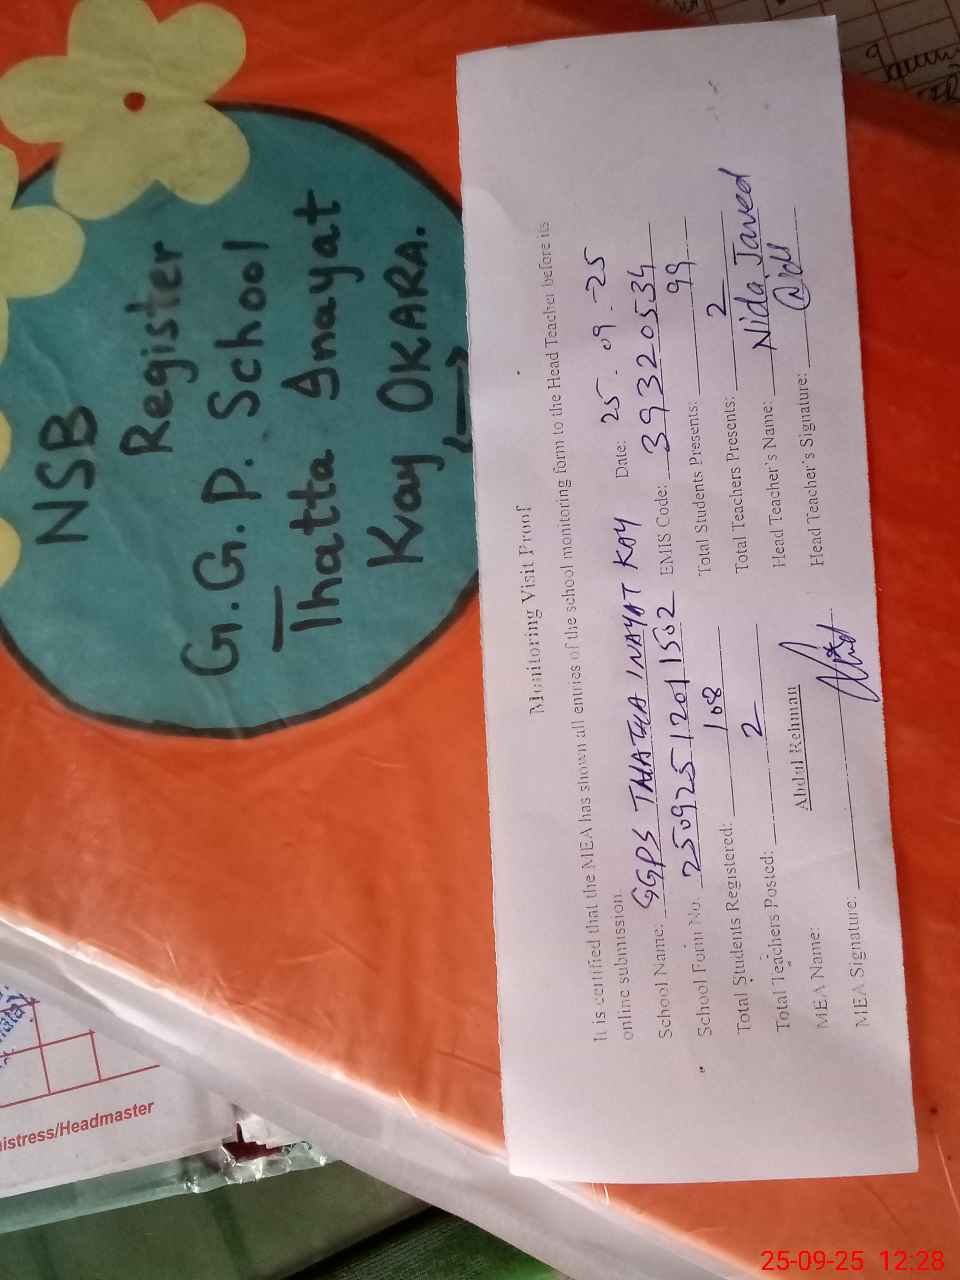 NSB
Register
G.G.P. School
Thatta Inayat
Kay OKARA.
Monitoring Visit Proof
It is certified that the MEA has shown all entries of the school monitoring form to the Head Teacher before its
online submission.
School Name: GGPS THATHA INAYAT KAY Date: 25-09-25
School Form No. 25092512011502 EMIS Code: 39320534
Total Students Registered: 108 Total Students Presents: 99
Total Teachers Posted: 2 Total Teachers Presents: 2
MEA Name: Abdul Rehman Head Teacher's Name: Nida Javed
MEA Signature: Head Teacher's Signature:
istress/Headmaster
25-09-25 12:28